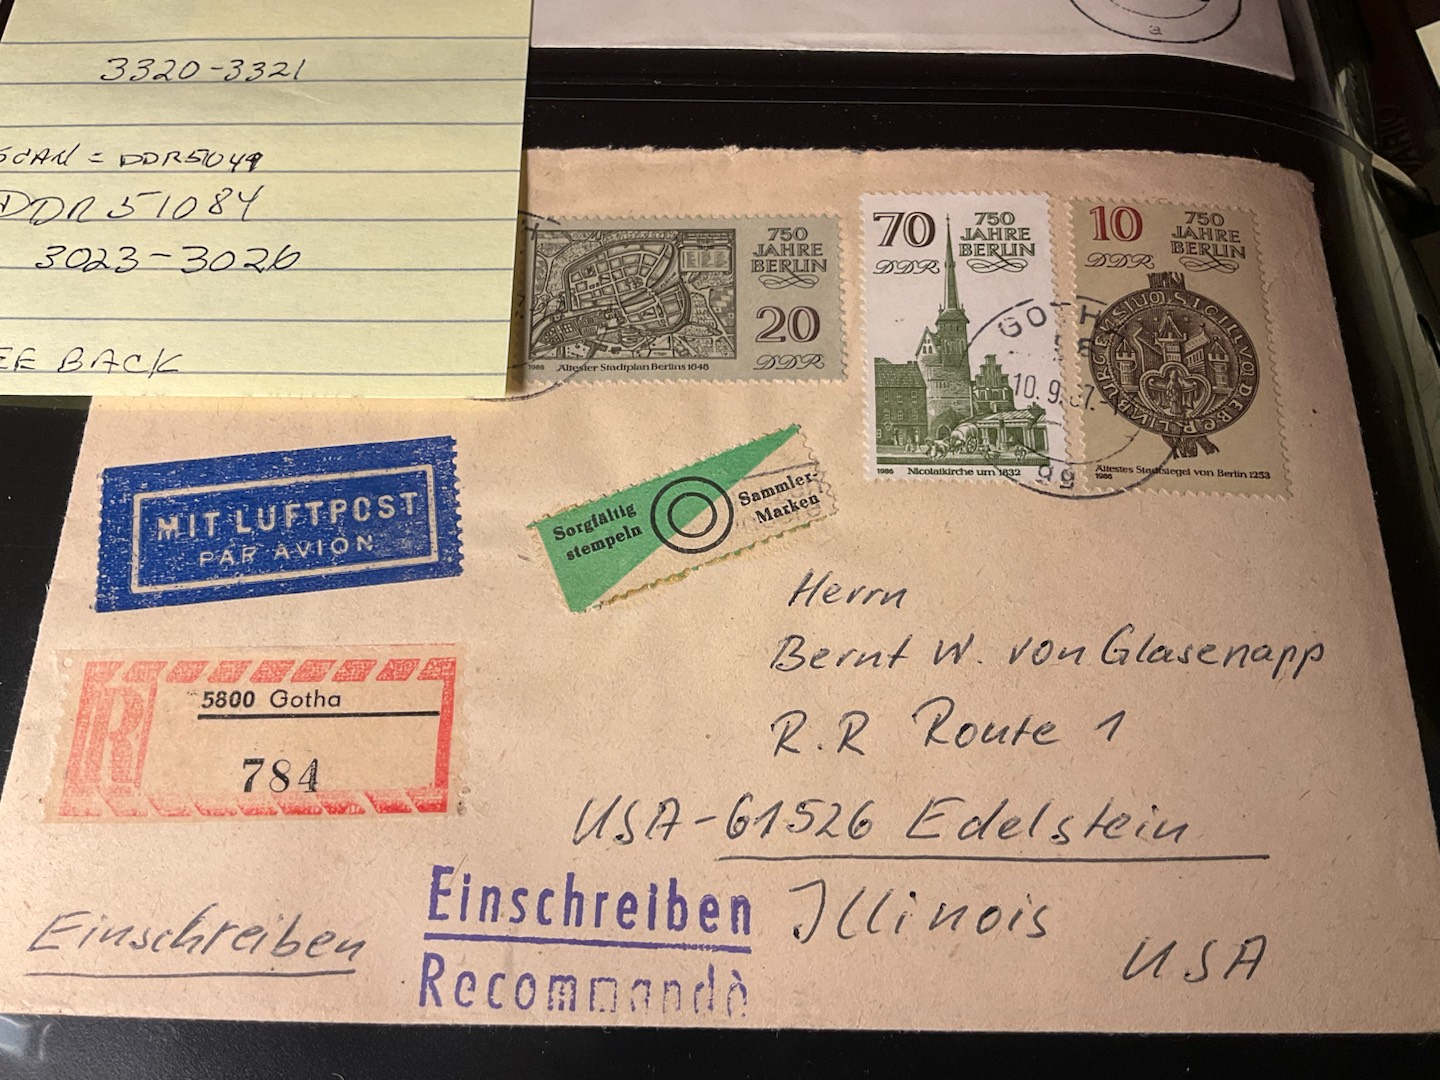 3320-3321
SCAN = DDR5049
DDR51084
3023-3026
EE BACK
750
JAHRE
BERLIN
20
DDR
1986 Ältester Stadtplan Berlins 1648
70
DDR
750
JAHRE
BERLIN
1986 Nicolaikirche um 1832
10
DDR
750
JAHRE
BERLIN
Ältestes Stadtsiegel von Berlin 1253
1986
GOTH
10.9.87.
58
MIT LUFTPOST
PAR AVION
Sorgfältig
stempeln
Sammler-
Marken
R
5800 Gotha
784
Herrn
Bernt W. von Glasenapp
R.R Route 1
USA-61526 Edelstein
Illinois
USA
Einschreiben
Einschreiben
Recommandè